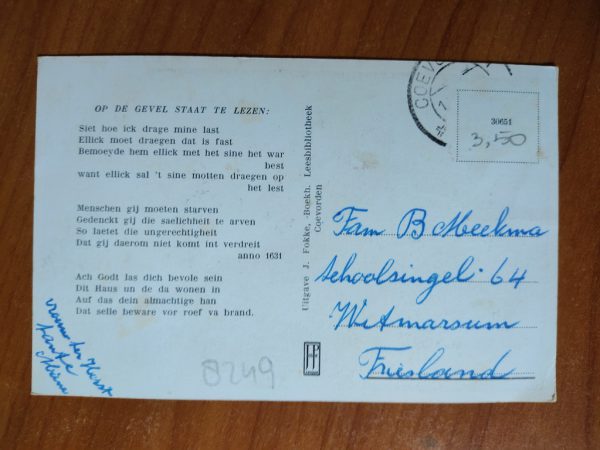 OP DE GEVEL STAAT TE LEZEN:
Siet hoe ick drage mine last
Ellick moet draegen dat is fast
Bemoeyde hem ellick met het sine het war
best
want ellick sal 't sine motten draegen op
het lest
Menschen gij moeten starven
Gedenckt gij die saelichheit te arven
So laetet die ungerechtigheit
Dat gij daerom niet komt int verdreit
anno 1631
Ach Godt las dich bevole sein
Dit Haus un de da wonen in
Auf das dein almachtige han
Dat selle beware vor roef va brand.
tante
8249
Uitgave J. Fokke, -Boekh. Leesbibliotheek
Coevorden
COEVO
30651
3,50
Fam B Meekma
Schoolsingel 64
Witmarsum
Friesland